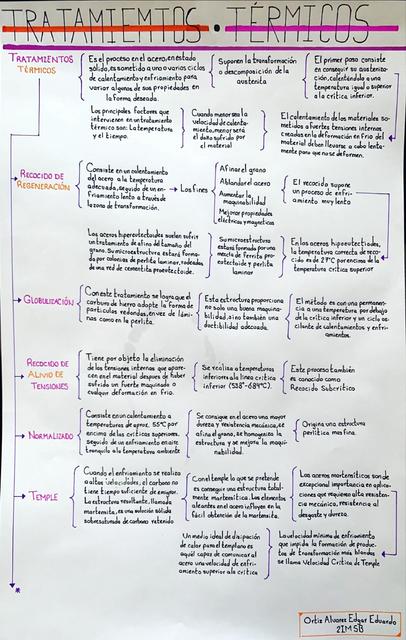 TRATAMIEMTOS • TÉRMICOS
TRATAMIENTOS
TÉRMICOS
Es el proceso en el acero, en estado
sólido, es sometido a uno o varios ciclos
de calentamiento y enfriamiento para
variar algunas de sus propiedades en
la forma deseada.
Suponen la transformación
o descomposición de la
austenita
El primer paso consiste
en conseguir su austenitiza-
ción, calentándola a una
temperatura igual o superior
a la crítica inferior.
Los principales factores que
intervienen en un tratamiento
térmico son: La temperatura
y el tiempo.
Cuando menor sea la
velocidad de calenta-
miento, menor será
el daño sufrido por
el material
El calentamiento de los materiales so-
metidos a fuertes tensiones internas
creadas en la deformación en frío del
material deben llevarse a cabo lenta-
mente para que no se deformen.
RECOCIDO DE
REGENERACIÓN
Consiste en un calentamiento
del acero a la temperatura
adecuada, seguido de un en-
friamiento lento a través de
la zona de transformación.
Los fines
Afinar el grano
Ablandar el acero
Aumentar la
maquinabilidad
Mejorar propiedades
eléctricas y magnéticas
El recocido supone
un proceso de enfri-
amiento muy lento
Los aceros hipereutectoides suelen sufrir
un tratamiento de afino del tamaño del
grano. Su microestructura estará forma-
da por colonias de perlita laminar, rodeadas
de una red de cementita proeutectoide.
Su microestructura
estará formada por una
mezcla de ferrita pro-
eutectoide y perlita
laminar
En los aceros hipoeutectoides,
la temperatura correcta de reco-
cido es de 27°C por encima de la
temperatura crítica superior
GLOBULIZACIÓN
Con este tratamiento se logra que el
carburo de hierro adopte la forma de
partículas redondas, en vez de lámi-
nas como en la perlita.
Esta estructura proporciona
no solo una buena maquina-
bilidad, si no también una
ductibilidad adecuada.
El método es con una permanen-
cia a una temperatura por debajo
de la crítica inferior y un ciclo os-
cilante de calentamientos y enfria-
mientos.
RECOCIDO
DE ALIVIO DE
TENSIONES
Tiene por objeto la eliminación
de las tensiones internas que apare-
cen en el material despues de haber
sufrido un fuerte maquinado o
cualquier deformación en frío.
Se realiza a temperaturas
inferiores a la línea crítica
inferior (538°-684°C).
Este proceso también
es conocido como
Recocido Subcrítico
NORMALIZADO
Consiste en un calentamiento a
temperaturas de aprox. 55°C por
encima de las críticas superiores,
seguido de un enfriamiento en aire
tranquilo a la temperatura ambiente
Se consigue en el acero una mayor
dureza y resistencia mecánica, se
afina el grano, se homogeniza la
estructura y se mejora la maqui-
nabilidad.
Origina una estructura
perlítica más fina.
TEMPLE
Cuando el enfriamiento se realiza
a altas velocidades, el carbono no
tiene tiempo suficiente de emigrar.
La estructura resultante, llamada
martensita, es una solución sólida
sobresaturada de carbono retenido
Con el temple lo que se pretende
es conseguir una estructura total-
mente martensítica. Los elementos
aleantes en el acero influyen en la
fácil obtención de la martensita.
Los aceros martensíticos son de
excepcional importancia en aplica-
ciones que requieren alta resisten-
cia mecánica, resistencia al
desgaste y dureza.
Un medio ideal de disipación
de calor para el templado es
aquél capaz de comunicar al
acero una velocidad de enfri-
amiento superior a la crítica
La velocidad mínima de enfriamiento
que impida la formación de produc-
tos de transformación más blandos
se llama Velocidad Crítica de Temple
Ortiz Alvarez Edgar Eduardo
2IM5B